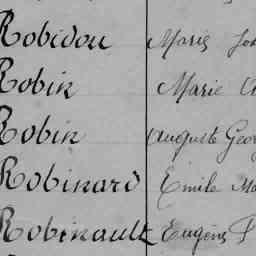 Robidou Marie
Robin Marie
Robin Auguste
Robinard Emile
Robinault Eugène